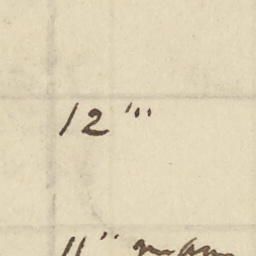 12'''
11''